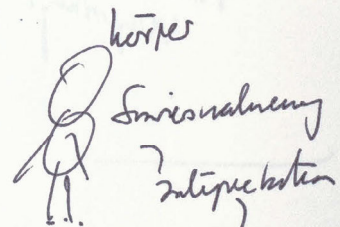 körper
Sinneswahrnehmung
Interpretation